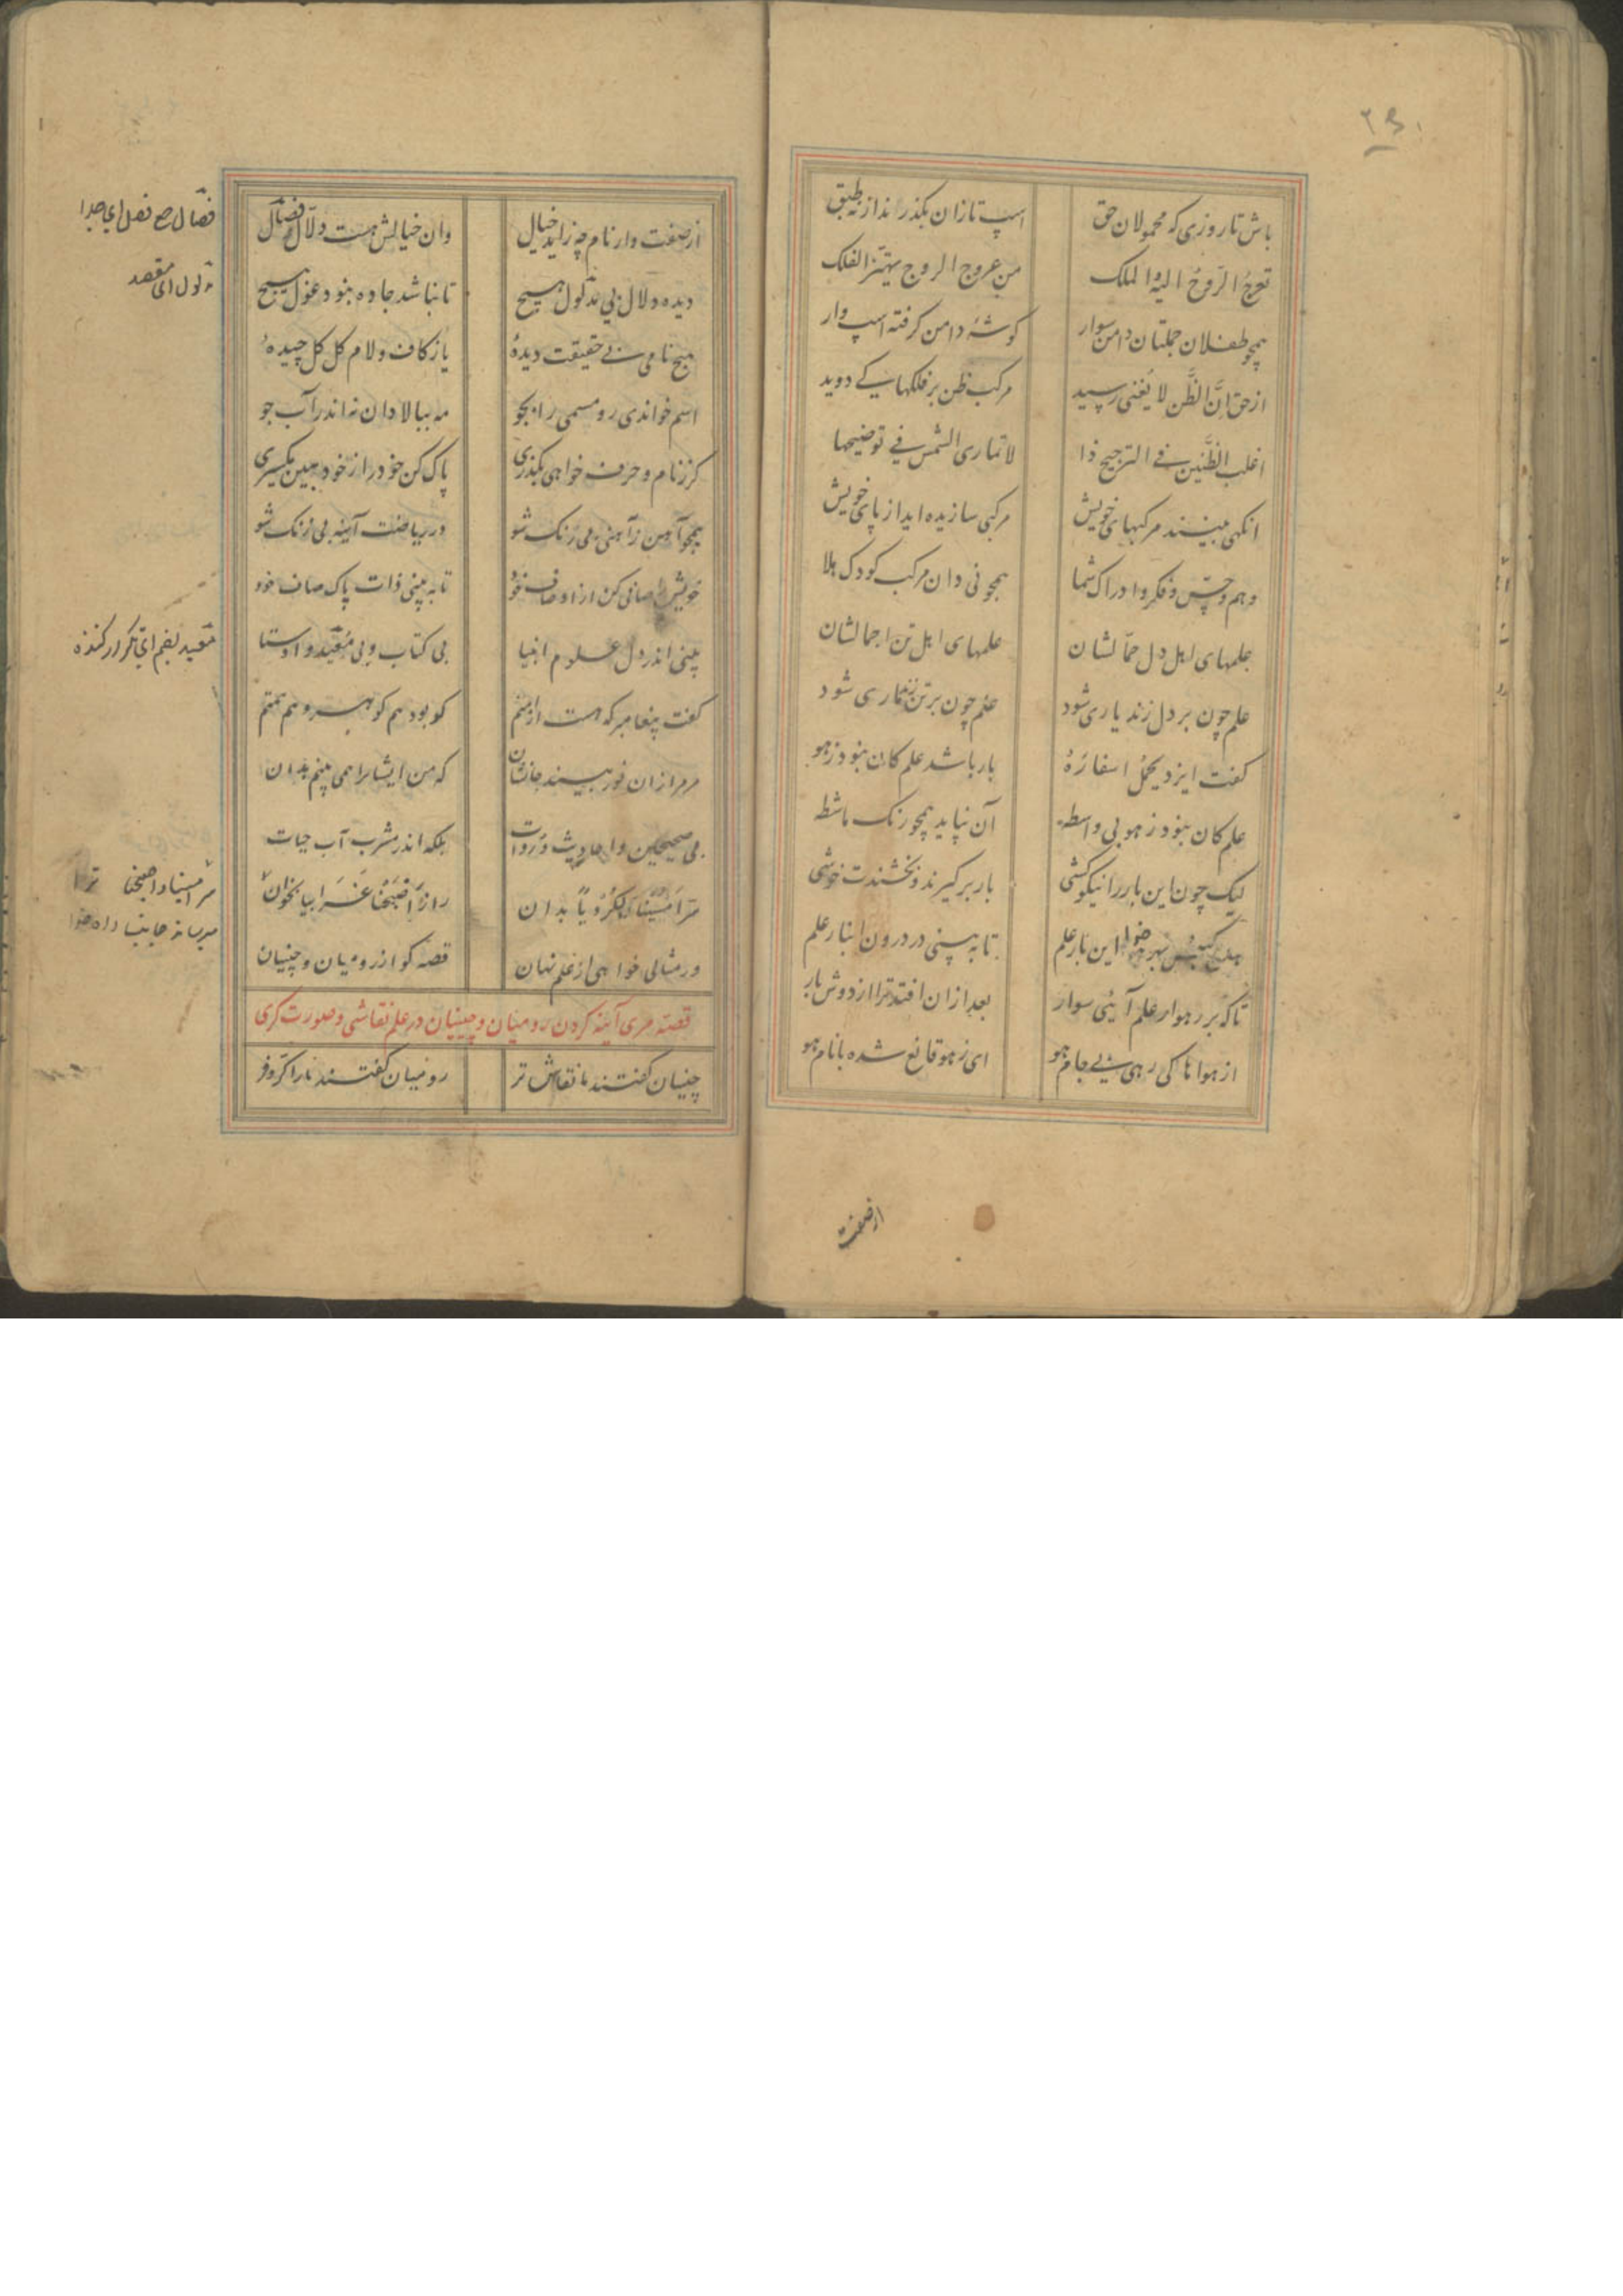 باش تا روزی که محمولان حق
اسپ تازان بکذرند از نه طبق
تعرج الرّوح الیه الملک
من عروج الروح یهتز الفلک
همچو طفلان جملتان دامن سوار
کوشهٔ دامن کرفته اسپ وار
از حق اِنَّ الظَّن لا یُغنی رسید
مرکب ظن بر فلکها کے دوید
اغلب الظَّنین فے الترجیح ذا
لا تماری الشمس فے توضیحها
انکهی بینند مرکبهای خویش
مرکبی سازیده اید از پای خویش
وهم و حسّ و فکر و ادراک شما
همچو نی دان مرکب کودک هلا
علمهای اهل دل حمّالشان
علمهای اهل تن احمالشان
علم چون بر دل زند یاری شود
علم چون بر تن زند ماری شود
کفت ایزد یحمل اسفارهٔ
بار باشد علم کان نبود ز هو
علم کان نبود ز هو بی واسطه
آن نپاید همچو رنک ماشطه
لیک چون این بار را نیکو کشی
بار بر کیرند و بخشندت خوشی
این بار علم
تا به بینی در درون انبار علم
تا که بر رهوار علم آئی سوار
بعد ازان افتد ترا از دوش بار
از هواها کی رهی بے جام هو
ای ز هو قانع شده با نام هو
از صفت
از صفت واز نام چه زاید خیال
وان خیالش هست دلّال وصال
دیدهٔ دلال بی مدلول هیچ
تا نباشد جاده نبود غول هیچ
هیچ نامی بے حقیقت دیدهٔ
یا ز کاف و لام کل کل چیدهٔ
اسم خواندی رو مسمی را بجو
مه ببالا دان نه اندر آب جو
کر ز نام و حرف خواهی بکذری
پاک کن خود را ز خود بین یکسری
همچو آهن ز آهنی بی رنک شو
در ریاضت آینه بی زنک شو
خویش را صافی کن از اوصاف خود
تا به بینی ذات پاک صاف خود
بینی اندر دل علوم انبیا
بی کتاب و بی مُعید و اوستا
کفت پیغامبر که هست از امتم
کو بود هم کوهر و هم همتم
مر مرا زان نور بیند جانشان
که من ایشانرا همی بینم بدان
بی صحیحین و احادیث و رُوات
بلکه اندر مشرب آب حیات
سرّ اَمْسَیْنَا لَکُرْدِیاً بدان
راز اَصْبَحْنَا عَرَابیا بخوان
ور مثالی خواهی از علم نهان
قصه کو از رومیان و چینیان
قصّه مری آینه کردن رومیان و چینیان در علم نقاشی و صورت کری
چینیان کفتند ما نقاش تر
رومیان کفتند ما را کرّ و فر
فصّال جمع فصل ای جدا
ای مقصد
معید بضم ای تکرار کننده
سر امسینا و اصبحنا ترا